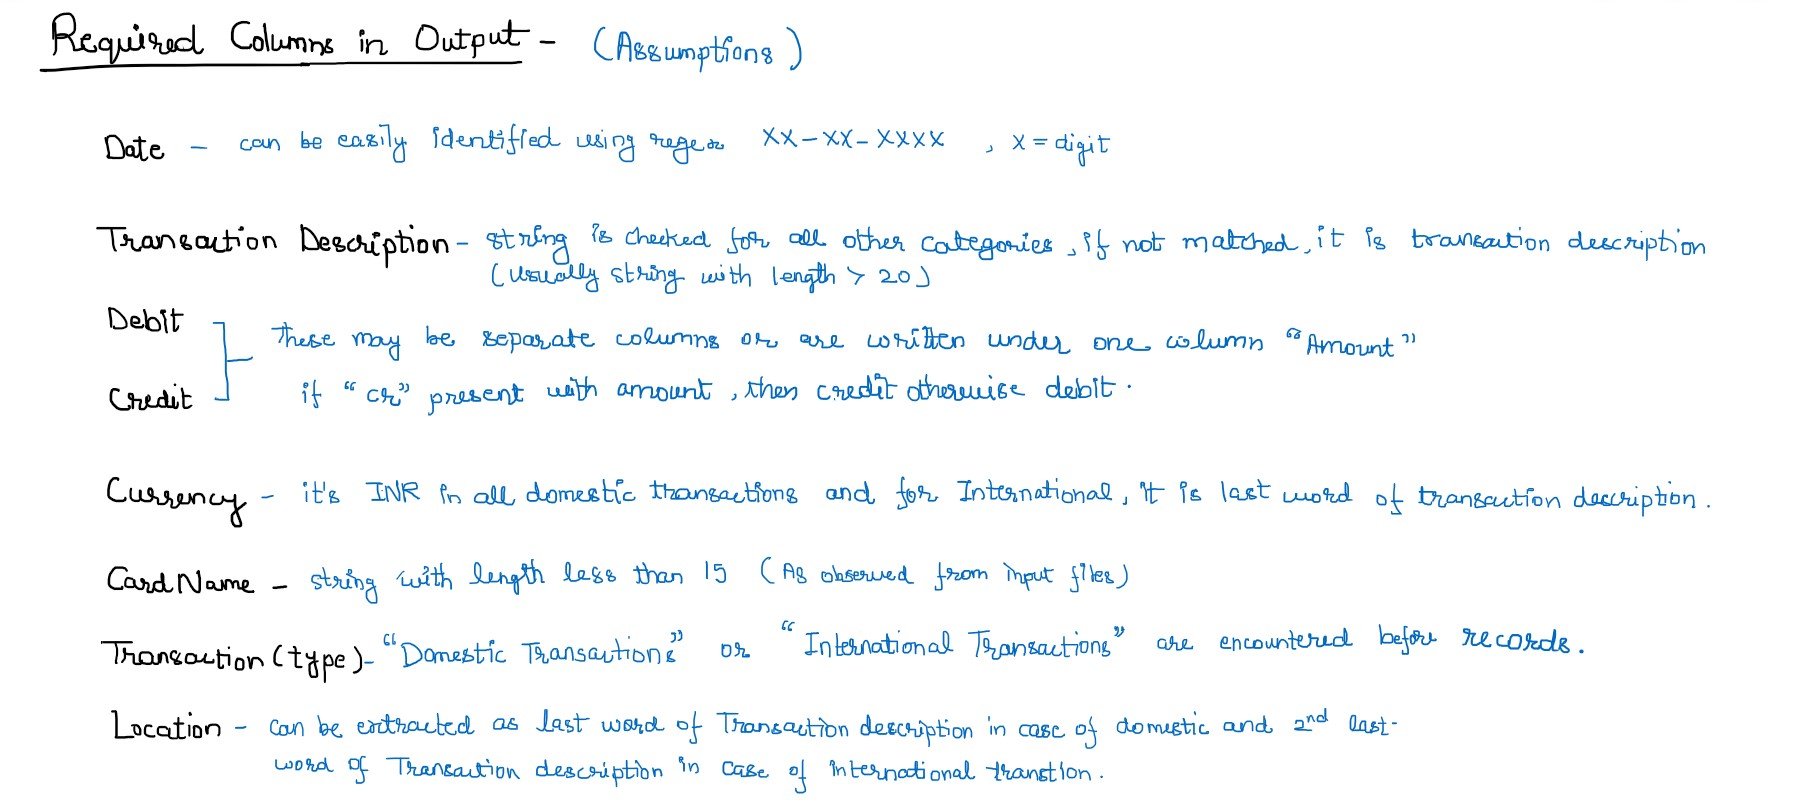 Required Columns in Output - (Assumptions)
Date - can be easily identified using regex XX-XX-XXXX , X = digit
Transaction Description - string is checked for all other categories, if not matched, it is transaction description
(usually string with length > 20)
Debit
These may be separate columns or are written under one column "Amount"
Credit
if "cr" present with amount, then credit otherwise debit.
Currency - it's INR in all domestic transactions and for International, it is last word of transaction description.
Card Name - string with length less than 15 (As observed from input files)
Transaction (type) - "Domestic Transactions" or "International Transactions" are encountered before records.
Location - can be extracted as last word of Transaction description in case of domestic and 2nd last-
word of Transaction description in case of international transtion.